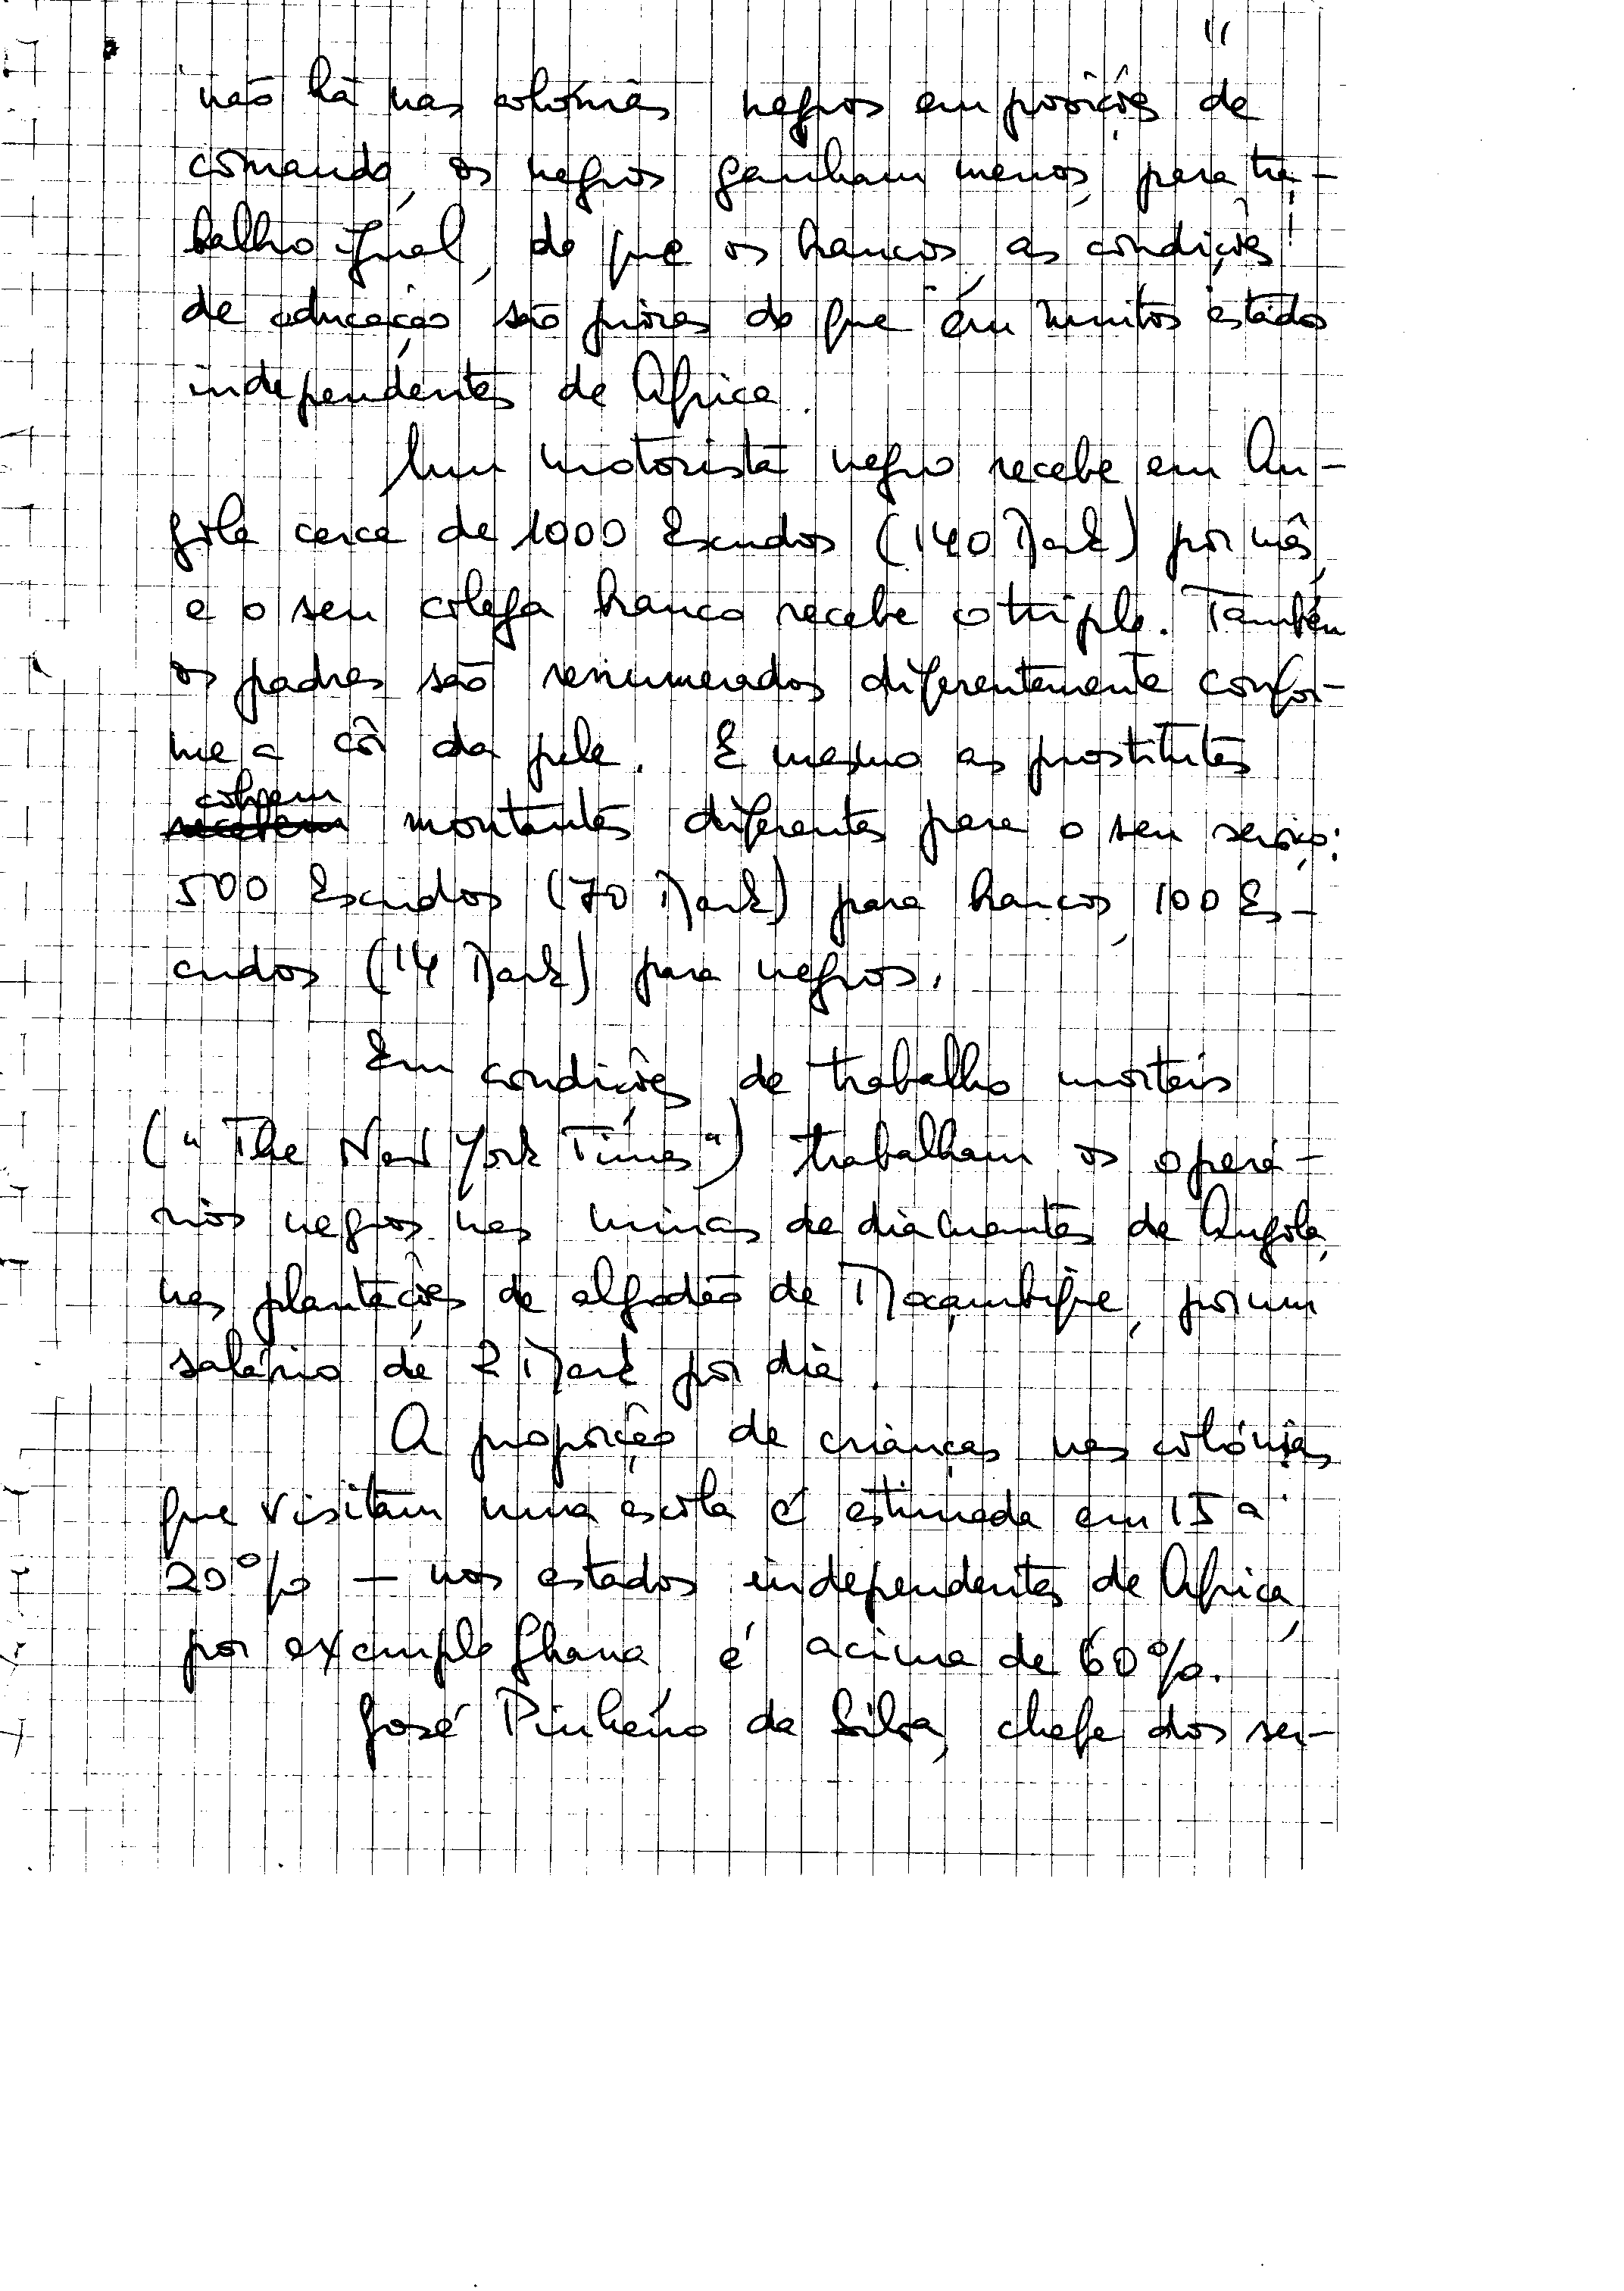 11
não há nas colónias negros em posições de
comando, os negros ganham menos, para tra-
balho igual, do que os brancos, as condições
de educação são piores do que em muitos estados
independentes de Africa.
Um motorista negro recebe em An-
gola cerca de 1000 Escudos (140 Mark) por mês,
e o seu colega branco recebe o triplo. Também
os padres são renumerados diferentemente confor-
me a côr da pele. E mesmo as prostitutas
cobram
recebem montantes diferentes para o seu serviço:
500 Escudos (70 Mark) para brancos, 100 Es-
cudos (14 Mark) para negros.
Em condições de trabalho mortais
("The New York Times") trabalham os operá-
rios negros nas minas de diamantes de Angola,
nas plantações de algodão de Moçambique, por um
salário de 2 Mark por dia.
A proporção de crianças nas colónias
que visitam uma escola é estimada em 15 a
20% – nos estados independentes de Africa,
por exemplo Ghana, é acima de 60%.
José Pinheiro da Silva, chefe dos ser-